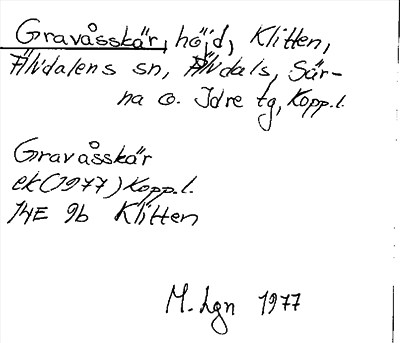 Gravåsskär, höjd, Klitten,
Älvdalens sn, Älvdals, Sär-
na o. Idre tg, Kopp.l.
Gravåsskär
ek (1977) Kopp.l.
14E 9b Klitten
M. Lgn 1977